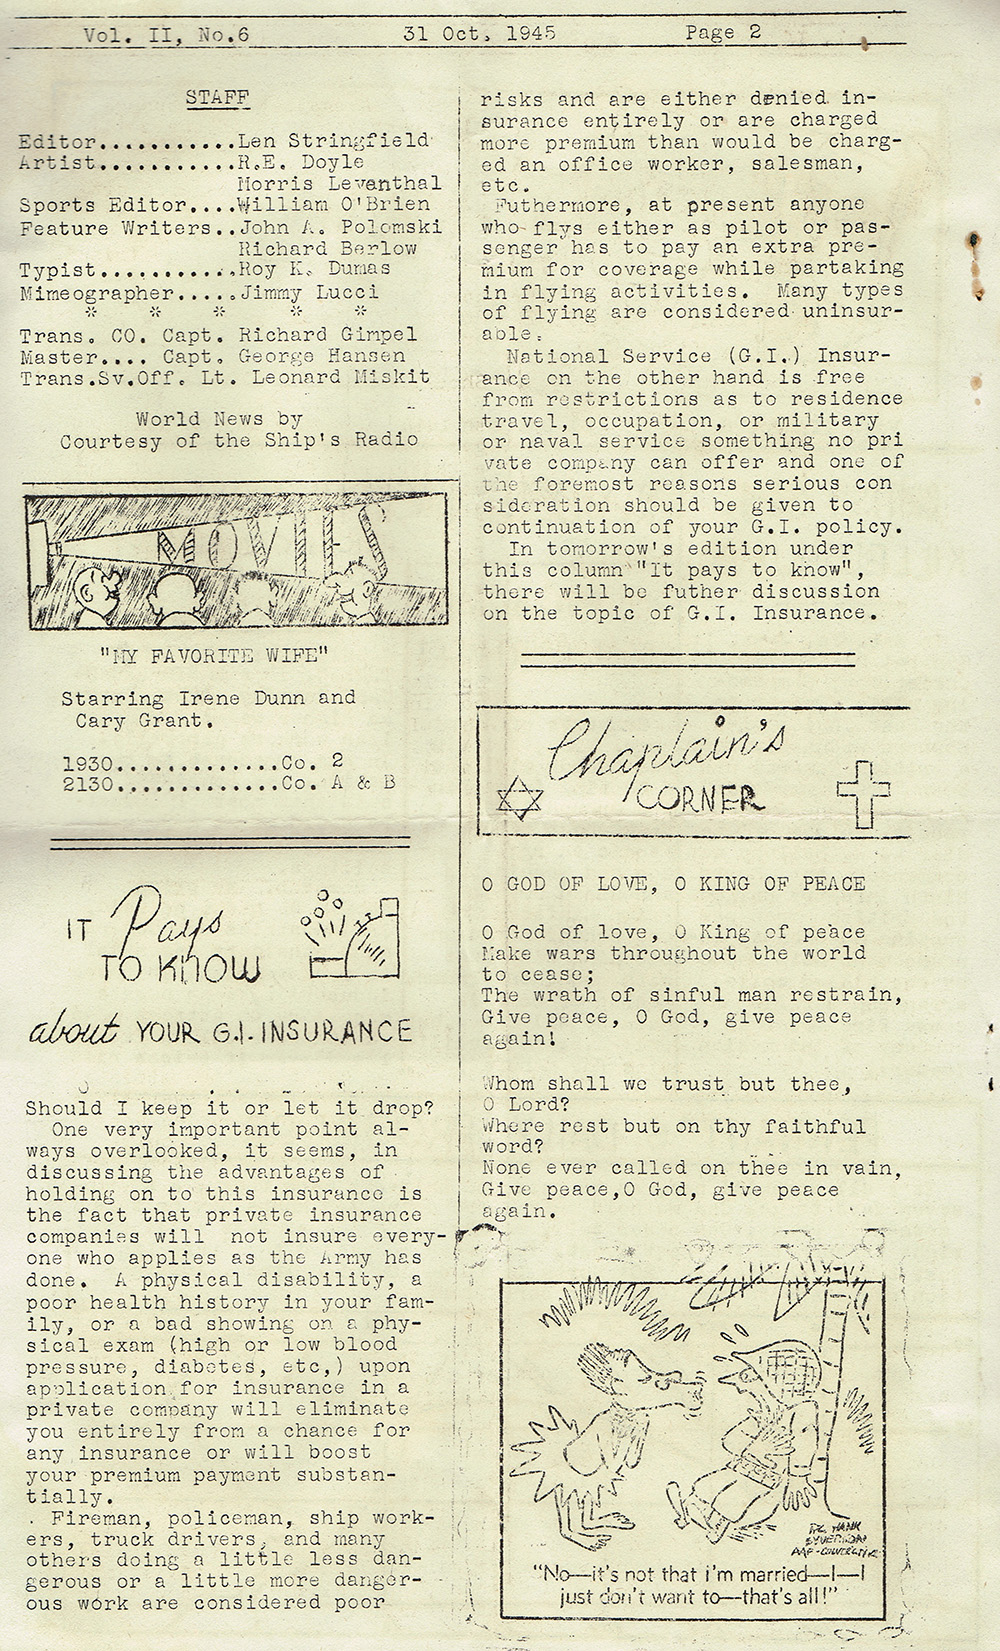 Vol. II, No.6 31 Oct, 1945 Page 2
STAFF
Editor...........Len Stringfield
Artist...........R.E. Doyle
Morris Leventhal
Sports Editor....William O'Brien
Feature Writers..John A. Polomski
Richard Berlow
Typist...........Roy K. Dumas
Mimeographer.....Jimmy Lucci
* * * * *
Trans. CO. Capt. Richard Gimpel
Master.... Capt. George Hansen
Trans.Sv.Off. Lt. Leonard Miskit
World News by
Courtesy of the Ship's Radio
MOVIES
"MY FAVORITE WIFE"
Starring Irene Dunn and
Cary Grant.
1930.............Co. 2
2130.............Co. A & B
IT Pays
TO KNOW
about YOUR G.I. INSURANCE
Should I keep it or let it drop?
One very important point al-
ways overlooked, it seems, in
discussing the advantages of
holding on to this insurance is
the fact that private insurance
companies will not insure every-
one who applies as the Army has
done. A physical disability, a
poor health history in your fam-
ily, or a bad showing on a phy-
sical exam (high or low blood
pressure, diabetes, etc,) upon
application for insurance in a
private company will eliminate
you entirely from a chance for
any insurance or will boost
your premium payment substan-
tially.
Fireman, policeman, ship work-
ers, truck drivers, and many
others doing a little less dan-
gerous or a little more danger-
ous work are considered poor
risks and are either denied in-
surance entirely or are charged
more premium than would be charg-
ed an office worker, salesman,
etc.
Futhermore, at present anyone
who flys either as pilot or pas-
senger has to pay an extra pre-
mium for coverage while partaking
in flying activities. Many types
of flying are considered uninsur-
able.
National Service (G.I.) Insur-
ance on the other hand is free
from restrictions as to residence
travel, occupation, or military
or naval service something no pri
vate company can offer and one of
the foremost reasons serious con
sideration should be given to
continuation of your G.I. policy.
In tomorrow's edition under
this column "It pays to know",
there will be futher discussion
on the topic of G.I. Insurance.
Chaplain's
CORNER
O GOD OF LOVE, O KING OF PEACE
O God of love, O King of peace
Make wars throughout the world
to cease;
The wrath of sinful man restrain,
Give peace, O God, give peace
again!
Whom shall we trust but thee,
O Lord?
Where rest but on thy faithful
word?
None ever called on thee in vain,
Give peace,O God, give peace
again.
HANK
"No—it's not that i'm married—I—I
just don't want to—that's all!"